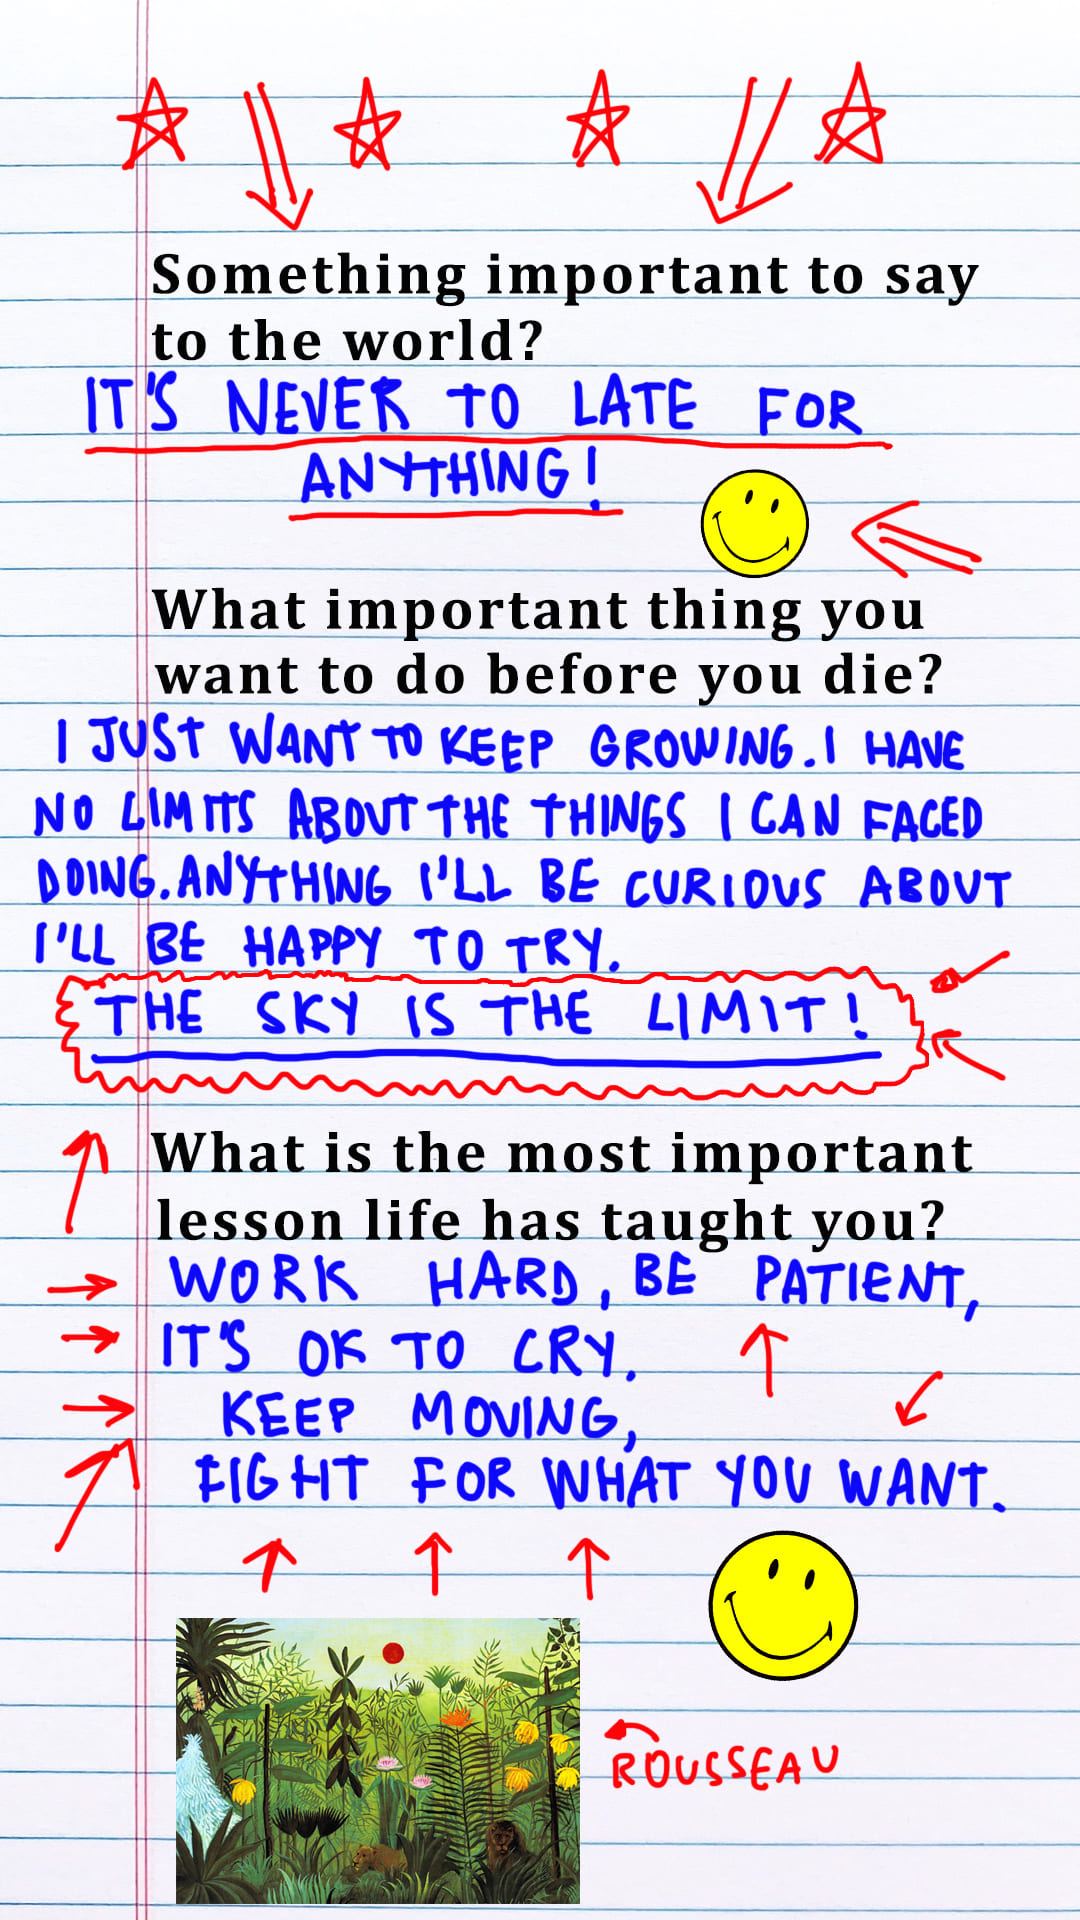 Something important to say
to the world?
IT'S NEVER TO LATE FOR
ANYTHING!
What important thing you
want to do before you die?
I JUST WANT TO KEEP GROWING. I HAVE
NO LIMITS ABOUT THE THINGS I CAN FACED
DOING. ANYTHING I'LL BE CURIOUS ABOUT
I'LL BE HAPPY TO TRY.
THE SKY IS THE LIMIT!
What is the most important
lesson life has taught you?
WORK HARD, BE PATIENT,
IT'S OK TO CRY.
KEEP MOVING,
FIGHT FOR WHAT YOU WANT.
ROUSSEAU